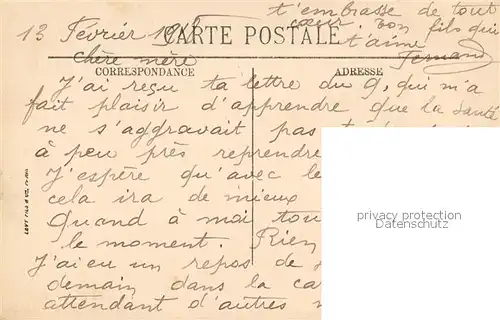 t'embrasse de tout
cœur. ton fils qui
t'aime
Fernand
13 Février
CARTE POSTALE
chère mère
CORRESPONDANCE
ADRESSE
J'ai reçu ta lettre du 9, qui m'a
fait plaisir d'apprendre que la santé
ne s'aggravait pas
à peu près reprendre
J'espère qu'avec le
cela ira de mieux
Quand à moi tou
le moment. Rien
J'ai eu un repos de
demain dans la ca
attendant d'autres
privacy protection
Datenschutz